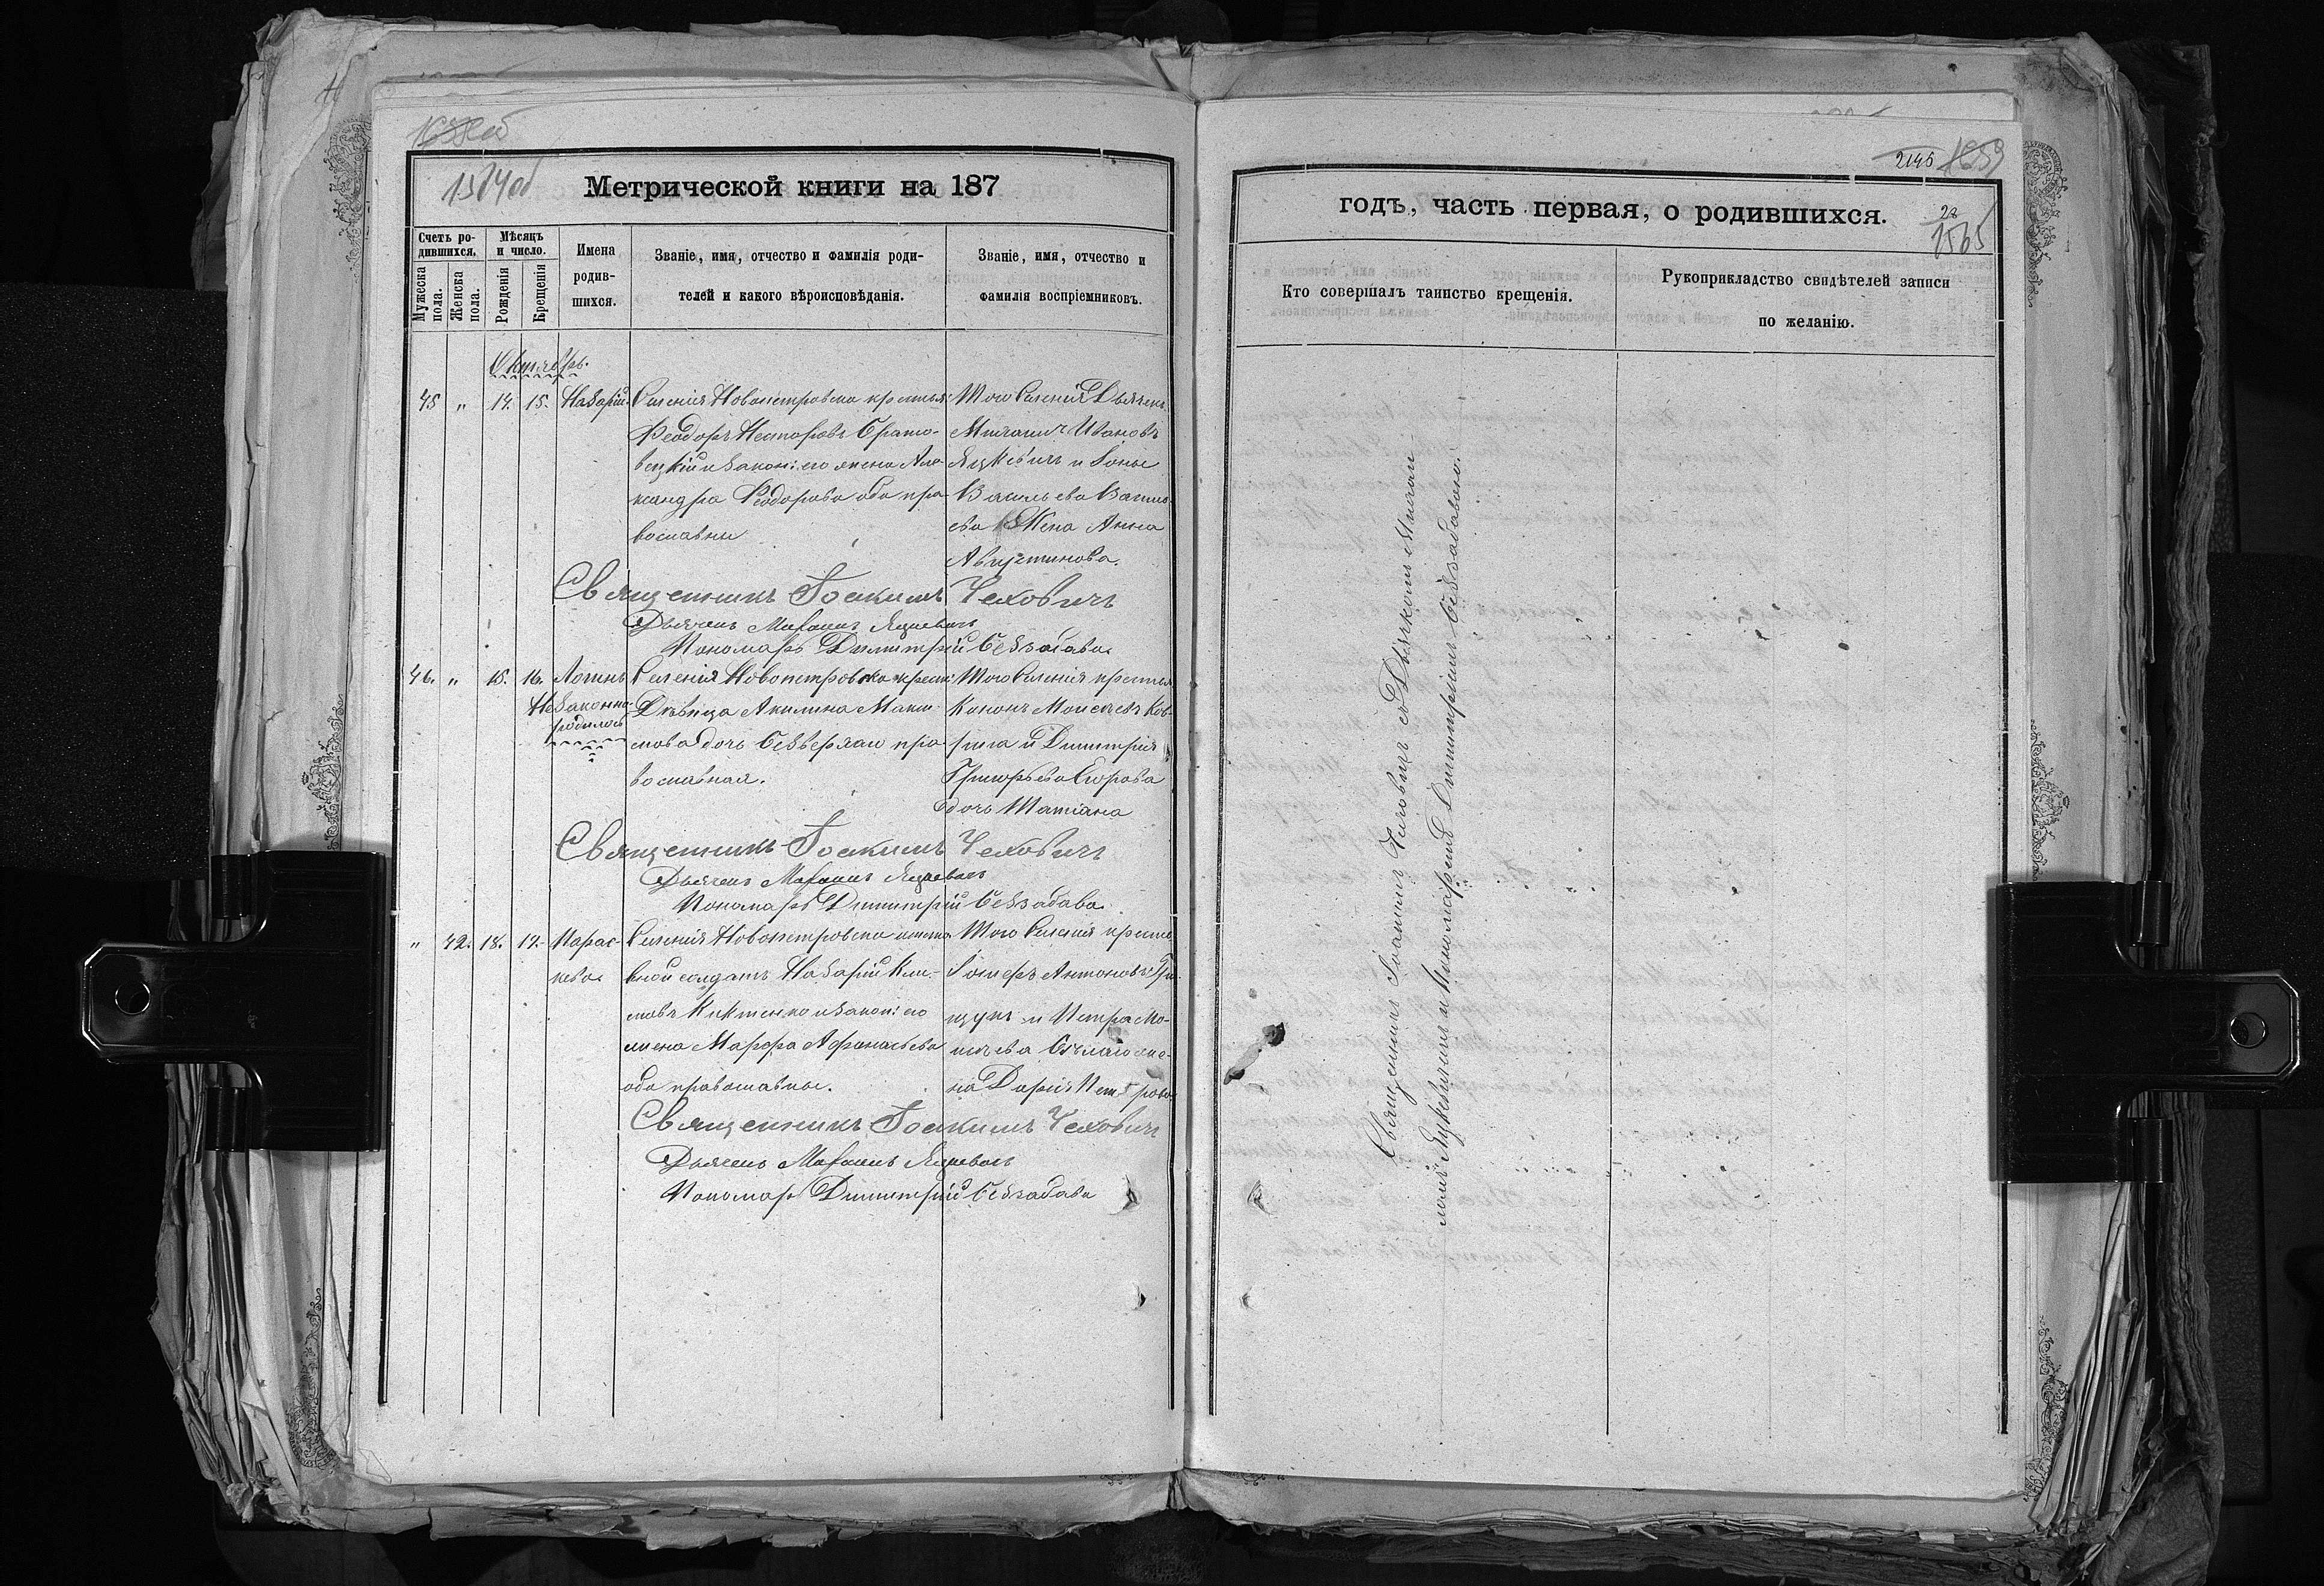 1564об
Метрической книги на 187
Счетъ ро-
дившихся.
Мѣсяцъ
и число.
Мужеска
пола.
Женска
пола.
Рожденія
Крещенія
Имена
родив-
шихся.
Званіе, имя, отчество и фамилія роди-
телей и какого вѣроисповѣданія.
Званіе, имя, отчество и
фамилія воспріемниковъ.
Октябрь.
45 " 14. 15. Назарій
Селенія Новопетровка крестья:
Феодоръ Несторовъ Брато-
вецкій и закон: его жена Але
ксандра Феодорова оба пра
вославны
Того Селенія Дьячекъ
Михаилъ Ивановъ
Яцкевичъ и
Васильева
жена Анна
Августинова.
Священникъ Іоакимъ Чеховичъ
Дьячекъ Михаилъ Яцкевичъ
Пономарь Димитрій Беззабава
46. " 15. 16. Логинъ
Незаконно
родилсь
Селенія Новопетровка крест:
Дѣвица Акилина Макси
мова дочь пра
вославная.
Того Селенія крестья
Кононъ Моисеевъ Ков-
рига и Димитрія
Григорьева Егорова
дочь Татіана
Священникъ Іоакимъ Чеховичъ
Дьячекъ Михаилъ Яцкевичъ
Пономарь Димитрій Беззабава
" 42. 18. 19. Парас-
кева
Селенія Новопетровка
вной солдатъ Назарій Кли-
мовъ Киктенко и закон: его
жена Марфа Афанасьева
оба православные.
Того Селенія крестья
Антоновъ Гри-
щукъ и Петра Мо-
исѣева Бѣлаго же-
на Дарія Петрова
Священникъ Іоакимъ Чеховичъ
Дьячекъ Михаилъ Яцкевичъ
Пономарь Димитрій Беззабава
2145 1659
22
1565
годъ, часть первая, о родившихся.
Кто совершалъ таинство крещенія.
Рукоприкладство свидѣтелей записи
по желанію.
Священникъ Іоакимъ Чеховичъ съ Дьячкомъ Михаи
ломъ Яцкевичемъ и Пономаремъ Димитріемъ Беззабавою.